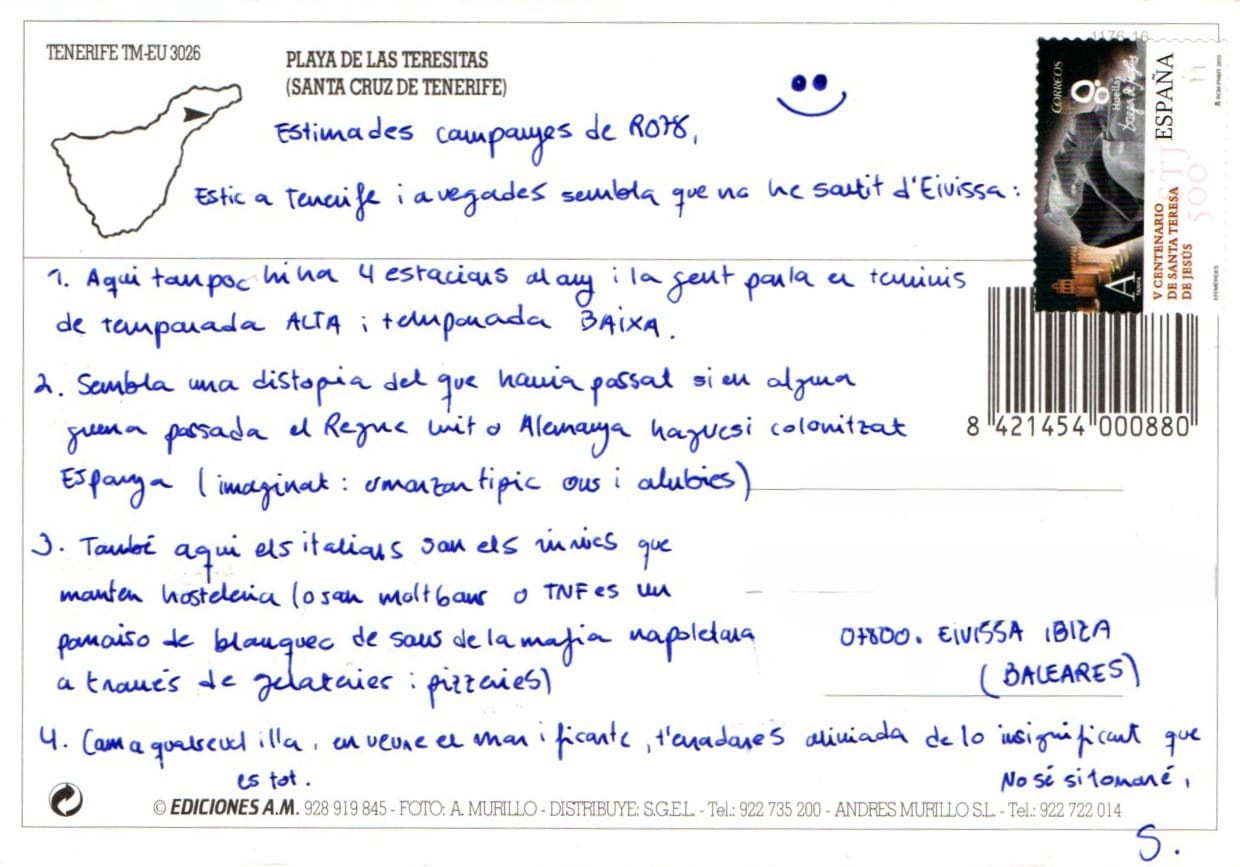 TENERIFE TM-EU 3026
PLAYA DE LAS TERESITAS
(SANTA CRUZ DE TENERIFE)
1176-16
CORREOS
Huellas
Teresa de Jesús
ESPAÑA
V CENTENARIO
DE SANTA TERESA
DE JESÚS
A
TARIFA
EFEMÉRIDES
500
Estimades companyes de R078,
Estic a Tenerife i a vegades sembla que no he sortit d'Eivissa:
1. Aqui tampoc hi ha 4 estacions al any i la gent parla en terminis
de temporada ALTA i temporada BAIXA.
2. Sembla una distopia del que havia passat si en alguna
guerra passada el Regne Unit o Alemanya haguesi colonitzat
Espanya (imaginat: esmorzar tipic ous i alubies)
3. També aqui els italians son els únics que
manten hosteleria (o son molt bons o TNF es un
paraiso de blanquec de sous de la mafia napoletana
a través de gelateries i pizzeries)
4. Com a qualsevol illa, en veure el mar i ficarte, t'enadones aliviada de lo insignificant que
es tot.
No sé si tornaré,
S.
8 421454 000880
07800. EIVISSA IBIZA
(BALEARES)
© EDICIONES A.M. 928 919 845 - FOTO: A. MURILLO - DISTRIBUYE: S.G.E.L. - Tel.: 922 735 200 - ANDRES MURILLO S.L. - Tel.: 922 722 014